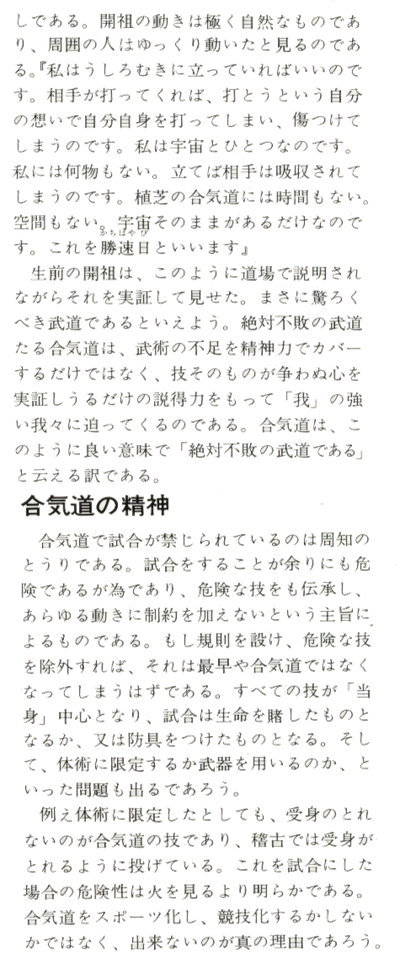 しである。開祖の動きは極く自然なものであ
り、周囲の人はゆっくり動いたと見るのであ
る。『私はうしろむきに立っていればいいので
す。相手が打ってくれば、打とうという自分
の想いで自分自身を打ってしまい、傷つけて
しまうのです。私は宇宙とひとつなのです。
私には何物もない。立てば相手は吸収されて
しまうのです。植芝の合気道には時間もない。
空間もない。宇宙そのままがあるだけなので
かちはやび
す。これを勝速日といいます』
生前の開祖は、このように道場で説明され
ながらそれを実証して見せた。まさに驚ろく
べき武道であるといえよう。絶対不敗の武道
たる合気道は、武術の不足を精神力でカバー
するだけではなく、技そのものが争わぬ心を
実証しうるだけの説得力をもって「我」の強
い我々に迫ってくるのである。合気道は、こ
のように良い意味で「絶対不敗の武道である」
と云える訳である。
合気道の精神
合気道で試合が禁じられているのは周知の
とうりである。試合をすることが余りにも危
険であるが為であり、危険な技をも伝承し、
あらゆる動きに制約を加えないという主旨に
よるものである。もし規則を設け、危険な技
を除外すれば、それは最早や合気道ではなく
なってしまうはずである。すべての技が「当
身」中心となり、試合は生命を賭したものと
なるか、又は防具をつけたものとなる。そし
て、体術に限定するか武器を用いるのか、と
いった問題も出るであろう。
例え体術に限定したとしても、受身のとれ
ないのが合気道の技であり、稽古では受身が
とれるように投げている。これを試合にした
場合の危険性は火を見るより明らかである。
合気道をスポーツ化し、競技化するかしない
かではなく、出来ないのが真の理由であろう。